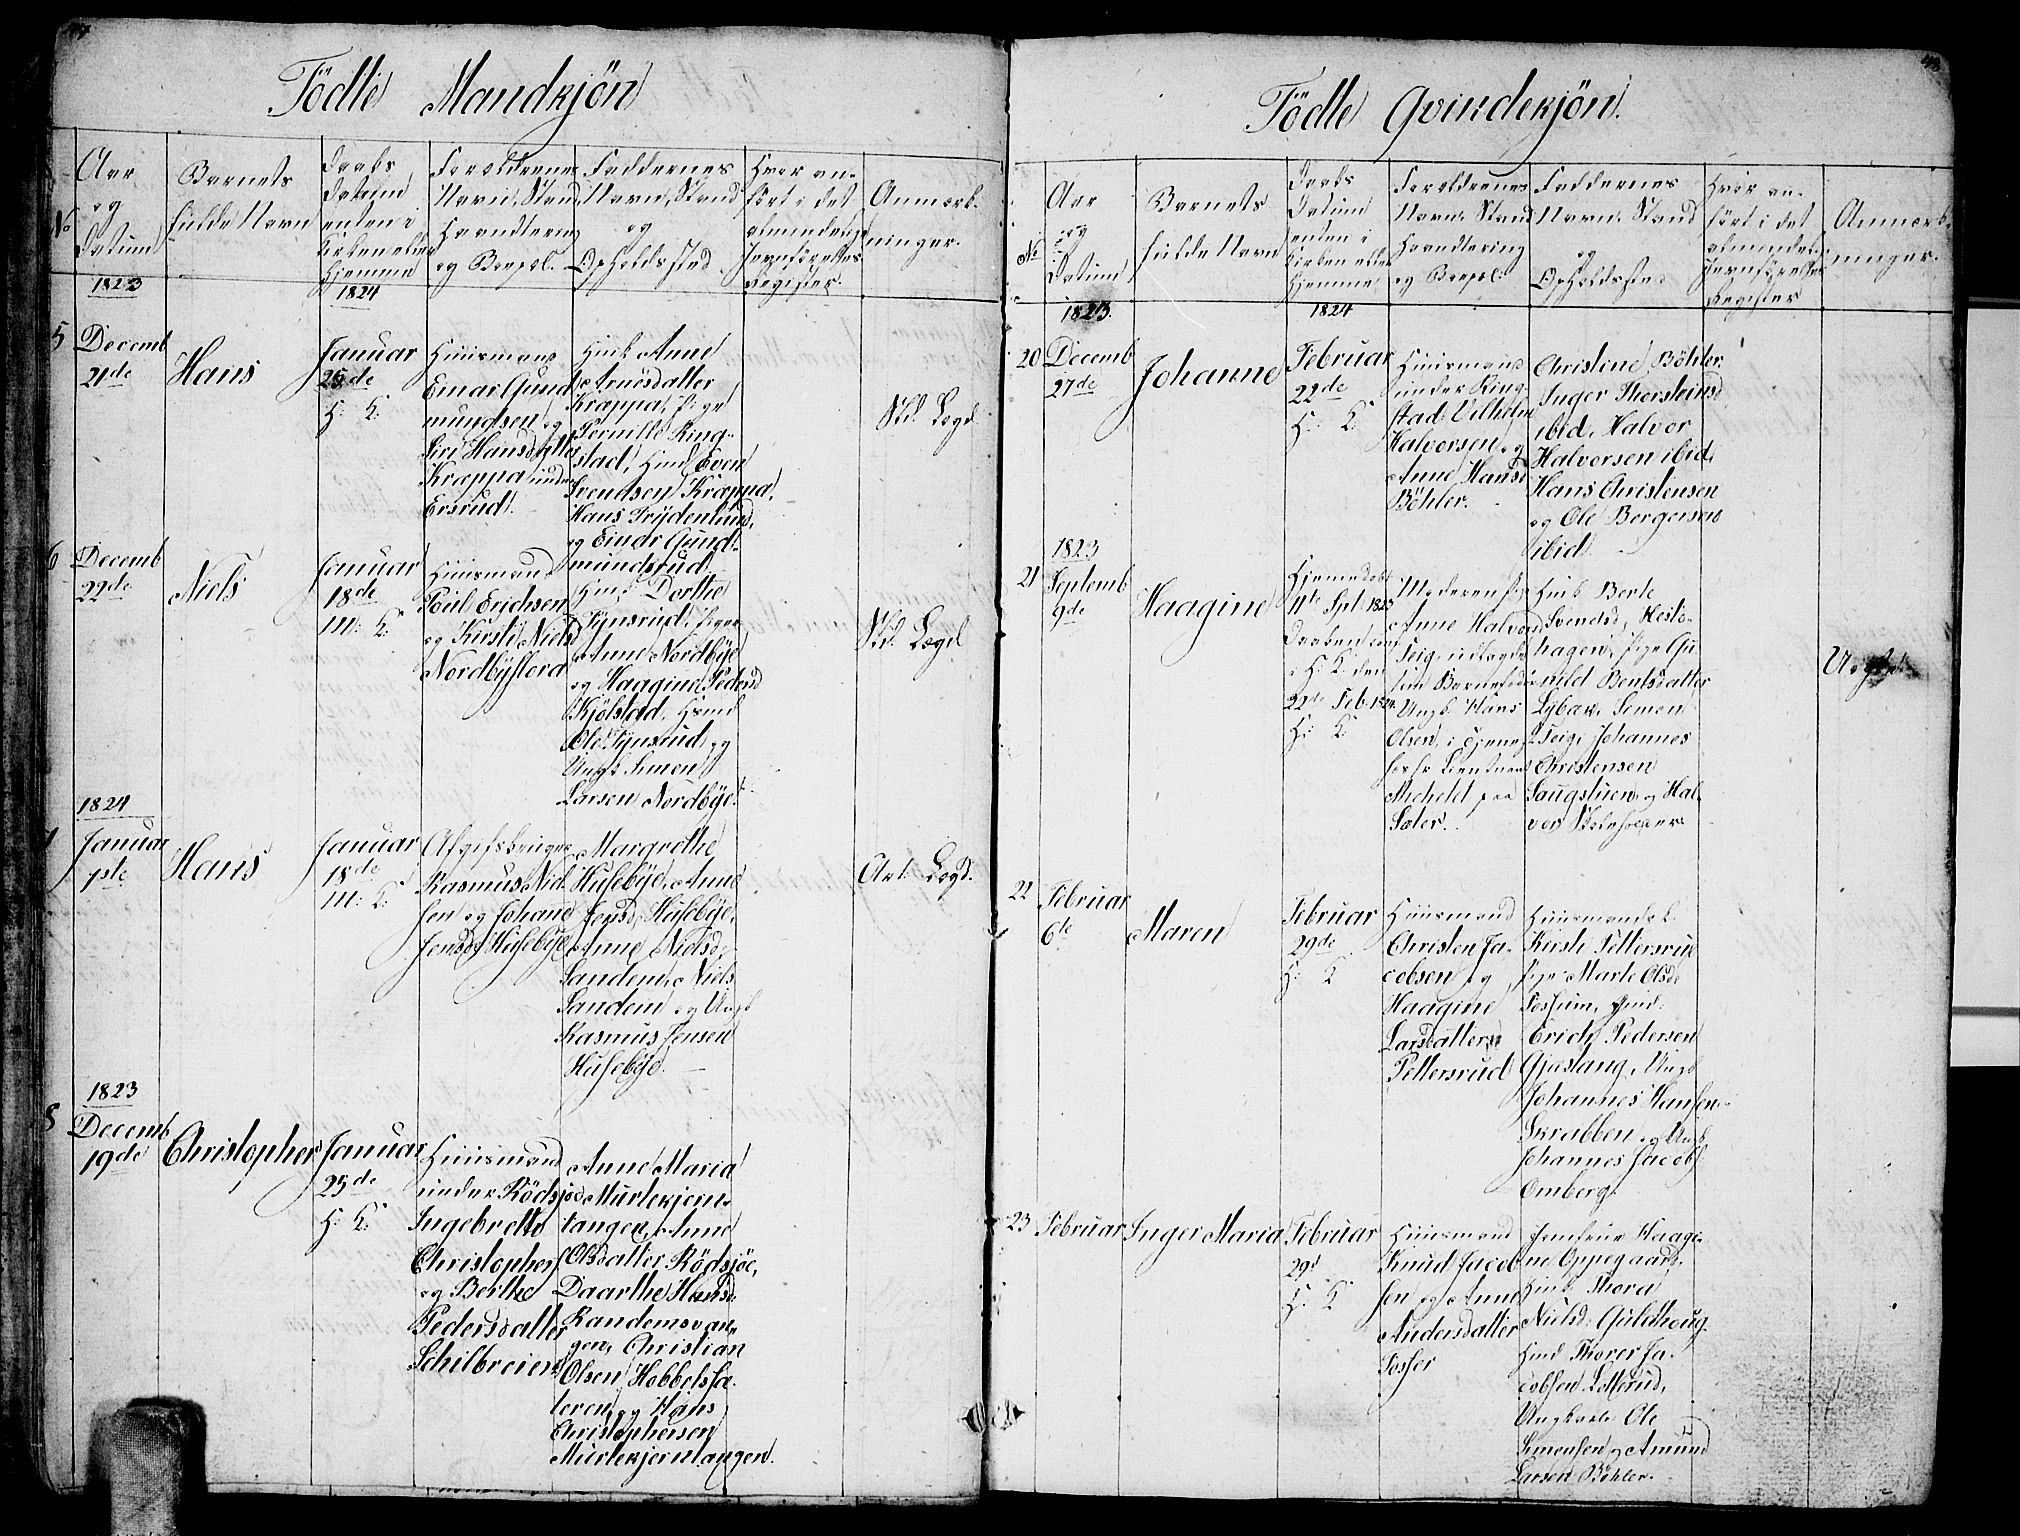 Födte Mandkjön
No
Aar
og
Datum
Barnets
fulde Navn
Daabs
Datum
enten i
Kirken eller
hjemme
Foreldrenes
Navn, Stand
Haandtering
og Boepel.
Faddernes
Navn, Stand
og
Opholdssted
Hvor an-
fört i det
almindelige
Jevnförelses
Register.
Anmærk-
ninger.
1823
1824
5
Decemb
21de
Hans
Januar
25de
H: K:
Huusmand
Einar Gund
mundsen og
Siri Hansdatter
Kræppa under
Ersrud.
Huusk Anne
Arnesdatter
Kræppa, Pige
Pernille Ring-
stad, Huusmd Even
Svendsen Kræppa,
Hans Frydenlund,
og Einar Gund-
mundsrud.
Str. Lægd
6
Decemb
22de
Niels
Januar
18de
M: K:
Huusmand
Poul Erichsen
og Kirsti Nielsd
Nordbyflora
Huusmd Dorthe
Tynsrud, Piger
Anne Nordbye
og Haagine Pedersd
Kjölstad, Huusmd
Ole Tynsrud, og
Ungk Simen
Larsen Nordbye.
Str. Lægd
1824
7
Januar
1ste
Hans
Januar
18de
M: K:
Afgifsbruger
Rasmus Niel
sen og Johane
Jensdr Husebye
Margrethe
Husebye, Anne
Jensd. Husebye,
Anne Nielsd.
Sandem, Niels
Sandem og Ungk
Rasmus Jensen
Husebye.
Art Lægd.
1823
8
Decemb
19de
Christopher
Januar
25de
H: K:
Huusmand
under Rödsjoe
Ingebrett
Christophers
og Berthe
Pedersdatter
Schilbreien
Anne Maria
Murtekjern-
tangen, Anne
Olsdatter Rödsjöe,
Daarthe Hansd:
Randemsvan-
gen, Christian
Olsen Hobbelsta-
teren, og Hans
Christophersen
Murtekjerntangen.
Födte Qvindekjön.
No
Aar
og
Datum
Barnets
fulde Navn
Daabs
Datum
enten i
Kirken eller
hjemme
Foreldrenes
Navn, Stand
Haandtering
og Boepel.
Faddernes
Navn, Stand
og
Opholdssted
Hvor an-
fört i det
almindelige
Jevnförelses
Register
Anmærk-
ninger.
1823.
1824
20
Decemb
27de
Johanne
Februar
22de
H: K:
Huusmand
under Ring-
stad Vilhelm
Halvorsen og
Anne Hansd
Böhler.
Christine Böhler,
Inger Thorsteinsd
ibid, Halvor
Halvorsen ibid,
Hans Christensen
og Ole Bergersen
ibid
1823
21
Septemb
9de
Haagine
Hjemmedöbt
11te Spt 1823
Daaben conf
i H: K den
22de Feb. 1824
H: K:
Moderen Pige
Anne Halvorsd
Teig, udlagde
som Barnefader
Ungk. Hans
Olsen, i Tjeneste
hos Hr Lieutnant
Michelet paa
Sæter.
Huusk Berte
Svendsd, Hesto-
hagen, Pige Gu-
nild Bentsdatter
Lybæk, Simen
Teig, Johannes
Christensen
Saugstuen og Hal-
vor
Uægte
22
Februar
6te
Maren
Februar
29de
H: K
Huusmand
Christen Ja-
cobsen og
Haagine
Larsdatter
Pettersrud
Huusmandsk
Kirsti Pettersrud
Pige Marte Olsdr
Fossum, Huusmd:
Erich Pedersen
Gjæslang, Ungk
Johannes Hansen
Skrabben og Ungk
Johannes Jacobs
Omberg.
23
Februar
Inger Maria
Februar
29d
H: K
Huusmand
Knud Jacob
sen og Anne
Andersdatter
Fosser
Jomfrue Haagi-
ne Oppegaard,
Huusk Thora
Nielsd: Guldhoug,
Huusmd Thorer Ja-
cobsen Lotterud,
Ungkarle Ole
Simensen og Amund
Larsen Böhler.